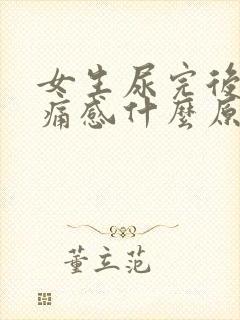 女生尿完後
痛感什麼原
董立范